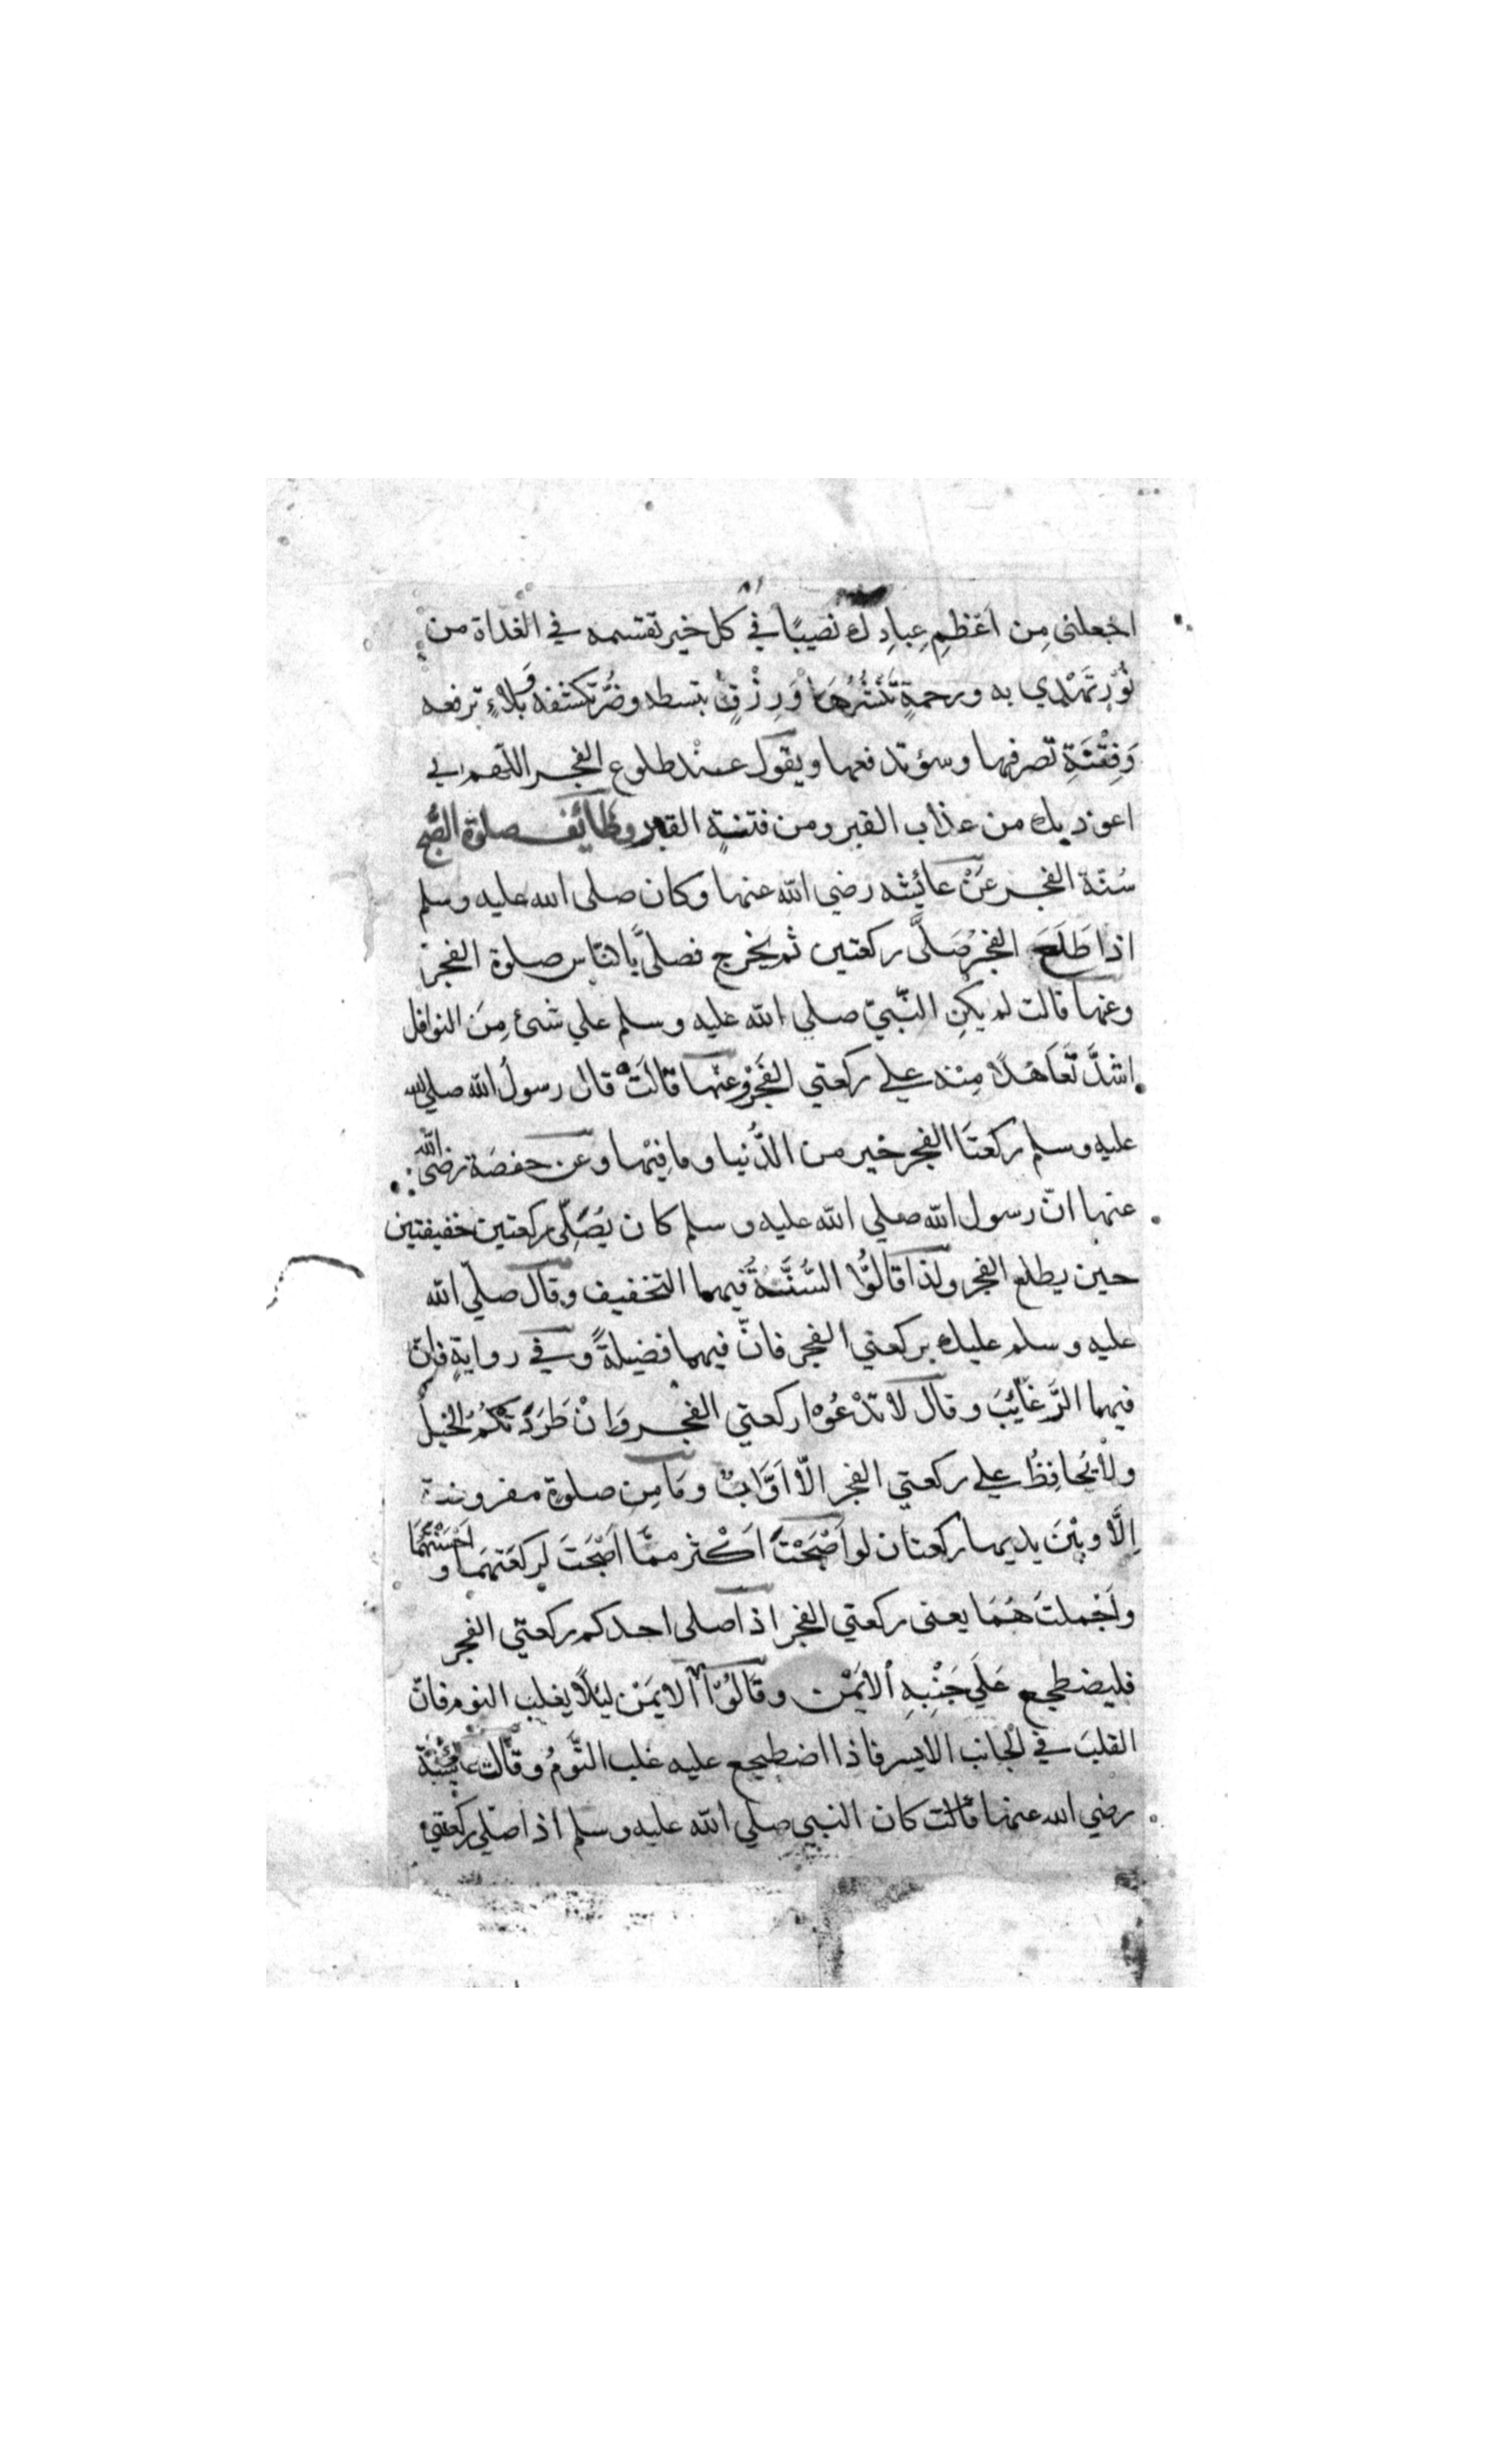 اجعلنى مِن اَعْظَمِ عِبادِك نصيبًا في كل خير تقتسمه في الغداة من
نُوْرٍ تَهْدِي به ورحمةٍ تَنْشُرُهَا وَرِزْقٍ تبسطه وضُرّ تكشفه وَبلاءٍ ترفعه
وَفِتْنَةٍ تصرفها وسوء تدفعها ويقول عند طلوع الفجر اللّهم اني
اعوذ بك من عذاب القبر ومن فتنةِ القبر وظائف صلوة الصُّبح
سُنّة الفجر عَنْ عائشه رضي الله عنها وكان صلى الله عليه وسلم
اذا طَلَعَ الفجر صَلَّى ركعتين ثم يخرج فصلىّ بالنّاس صلوة الفجر
وعنها قالت لم يكنِ النّبيّ صلي الله عليه وسلم علي شئ مِنَ النوافل
اشدَّ تَعَاهُدًا مِنْه علي ركعتي الفَجْرِ وعنْها قالَتْ قال رسولُ الله صلي الله
عليه وسلم ركعتَا الفجر خير من الدُّنيا وما فيْها وعن حفصَة رضى الله
عنها انّ رسول الله صلي الله عليه وسلم كان يُصَلِّى ركعتين خفيفتين
حين يطلع الفجر ولذا قالُوْا السُّنَّةُ فيهما التخفيف وقال صلّي الله
عليه وسلم عليك بركعتي الفجر فانّ فيهما فضيلةً وفي روايةٍ فانّ
فيهما الرَّغائِبَ وقال لا تدْعُوْا ركعتي الفجر وَانْ طَرَدَتْكُمُ الخيلُ
ولا يُحافِظُ علي ركعتي الفجر الّا اَوَّابٌ ومَا مِن صلوةٍ مفروضة
اِلَّا وبيْنَ يديها ركعتان لو اَصْبَحْتَ اَكْثر ممّا اَصْبَحْتَ لركعتهمَا و اَحْسَنْتَهُمَا
واَجْملتَ هُمَا يعنى ركعتي الفجر اذا صلى احدكم ركعتي الفجر
فليضطجع عَلَي جَنْبِهِ الْاَيْمَنْ وقالُوْا الايمَنْ ليئلَّا يغلب النوم فانّ
القلبَ في الجانب الايسر فاذا اضطجع عليه غلب النَّومُ وقالت عايشة
رضي الله عنها قالت كان النبي صلي الله عليه وسلم اذا صَلّي ركعتي